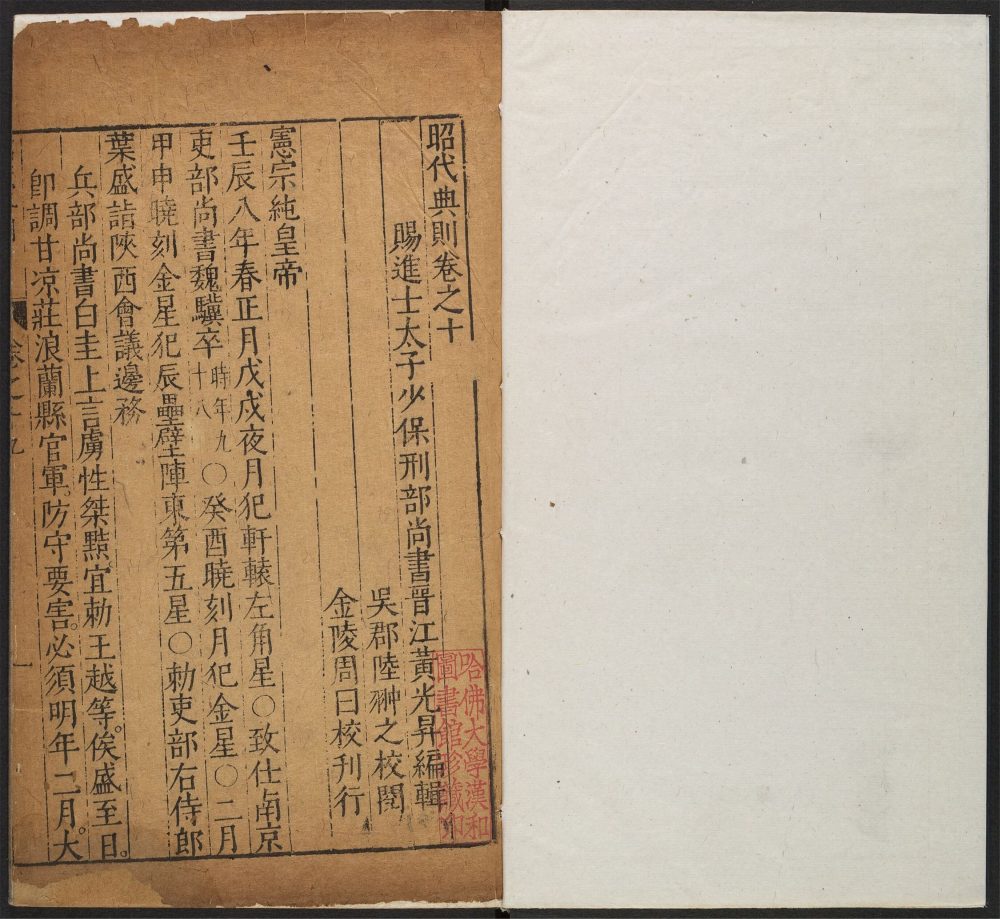 昭代典則卷之十
賜進士太子少保刑部尚書晉江黃光昇編輯
吳郡陸翀之校閱
金陵周曰校刊行
憲宗純皇帝
壬辰八年春正月戊戌夜月犯軒轅左角星○致仕南京
吏部尚書魏驥卒時年九十八○癸酉曉刻月犯金星○二月
甲申曉刻金星犯辰壘壁陣東第五星○勅吏部右侍郎
葉盛詣陝西會議邊務
兵部尚書白圭上言虜性桀黠宜勅王越等俟盛至日
卽調甘凉莊浪蘭縣官軍防守要害必須明年二月大
卷之十九
一
哈佛大學漢和
圖書館珍藏印